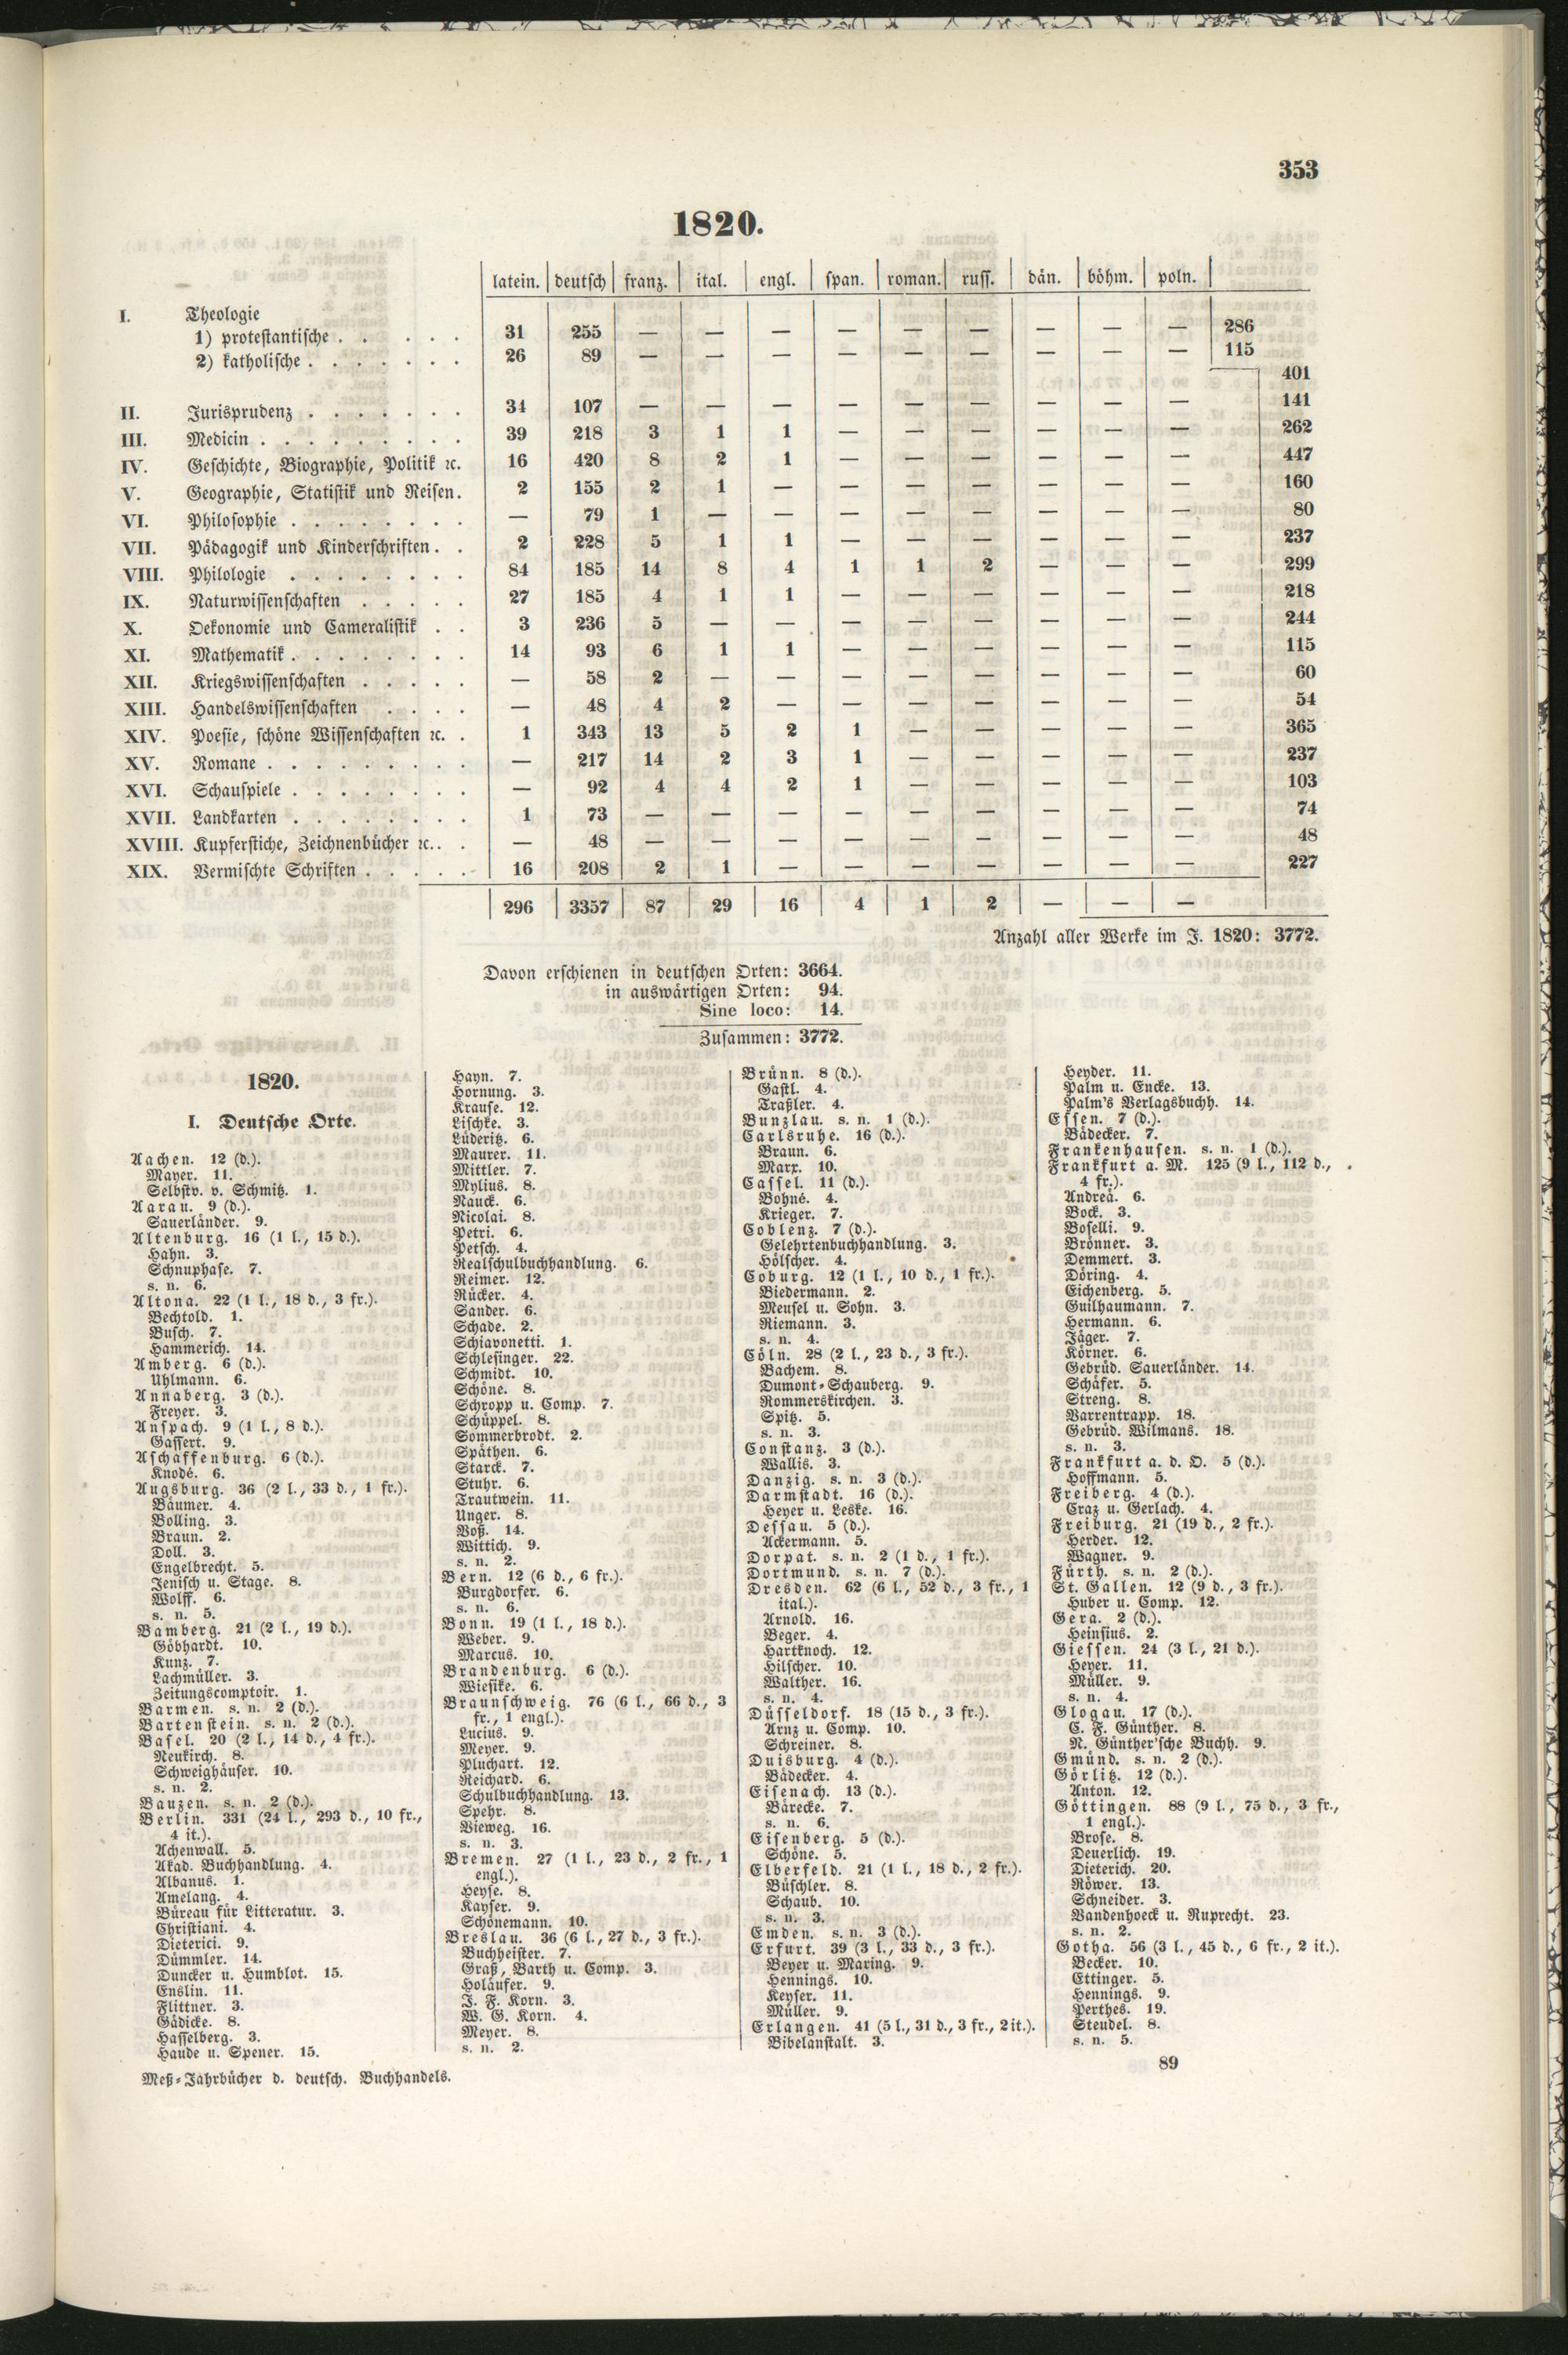 353
1820.
latein. deutsch franz. ital. engl. span. roman. russ. dän. böhm. poln.
I. Theologie
1) protestantische . . . . . . 31 255 — — — — — — — — — 286
2) katholische . . . . . . . 26 89 — — — — — — — — — 115
401
II. Jurisprudenz . . . . . . . 34 107 — — — — — — — — — 141
III. Medicin . . . . . . . . . 39 218 3 1 1 — — — — — — 262
IV. Geschichte, Biographie, Politik ꝛc. 16 420 8 2 1 — — — — — — 447
V. Geographie, Statistik und Reisen. 2 155 2 1 — — — — — — — 160
VI. Philosophie . . . . . . . . — 79 1 — — — — — — — — 80
VII. Pädagogik und Kinderschriften. . 2 228 5 1 1 — — — — — — 237
VIII. Philologie . . . . . . . . 84 185 14 8 4 1 1 2 — — — 299
IX. Naturwissenschaften . . . . . 27 185 4 1 1 — — — — — — 218
X. Oekonomie und Cameralistik . . 3 236 5 — — — — — — — — 244
XI. Mathematik . . . . . . . . 14 93 6 1 1 — — — — — — 115
XII. Kriegswissenschaften . . . . . — 58 2 — — — — — — — — 60
XIII. Handelswissenschaften . . . . — 48 4 2 — — — — — — — 54
XIV. Poesie, schöne Wissenschaften ꝛc. . 1 343 13 5 2 1 — — — — — 365
XV. Romane . . . . . . . . . — 217 14 2 3 1 — — — — — 237
XVI. Schauspiele . . . . . . . . — 92 4 4 2 1 — — — — — 103
XVII. Landkarten . . . . . . . . 1 73 — — — — — — — — — 74
XVIII. Kupferstiche, Zeichnenbücher ꝛc. . . — 48 — — — — — — — — — 48
XIX. Vermischte Schriften . . . . . 16 208 2 1 — — — — — — — 227
296 3357 87 29 16 4 1 2 — — —
Anzahl aller Werke im J. 1820: 3772.
Davon erschienen in deutschen Orten: 3664.
in auswärtigen Orten: 94.
Sine loco: 14.
Zusammen: 3772.
1820.
I. Deutsche Orte.
Aachen. 12 (d.).
Mayer. 11.
Selbstv. v. Schmitz. 1.
Aarau. 9 (d.).
Sauerländer. 9.
Altenburg. 16 (1 l., 15 d.).
Hahn. 3.
Schnuphase. 7.
s. n. 6.
Altona. 22 (1 l., 18 d., 3 fr.).
Bechtold. 1.
Busch. 7.
Hammerich. 14.
Amberg. 6 (d.).
Uhlmann. 6.
Annaberg. 3 (d.).
Freyer. 3.
Anspach. 9 (1 l., 8 d.).
Gassert. 9.
Aschaffenburg. 6 (d.).
Knode. 6.
Augsburg. 36 (2 l., 33 d., 1 fr.).
Bäumer. 4.
Bolling. 3.
Braun. 2.
Doll. 3.
Engelbrecht. 5.
Jenisch u. Stage. 8.
Wolff. 6.
s. n. 5.
Bamberg. 21 (2 l., 19 d.).
Göbhardt. 10.
Kunz. 7.
Lachmüller. 3.
Zeitungscomptoir. 1.
Barmen. s. n. 2 (d.).
Bartenstein. s. n. 2 (d.).
Basel. 20 (2 l., 14 d., 4 fr.).
Neukirch. 8.
Schweighäuser. 10.
s. n. 2.
Bauzen. s. n. 2 (d.).
Berlin. 331 (24 l., 293 d., 10 fr.,
4 it.).
Achenwall. 5.
Akad. Buchhandlung. 4.
Albanus. 1.
Amelang. 4.
Büreau für Litteratur. 3.
Christiani. 4.
Dieterici. 9.
Dümmler. 14.
Duncker u. Humblot. 15.
Enslin. 11.
Flittner. 3.
Gädicke. 8.
Hasselberg. 3.
Haude u. Spener. 15.
Hayn. 7.
Hornung. 3.
Krause. 12.
Lischke. 3.
Lüderitz. 6.
Maurer. 11.
Mittler. 7.
Mylius. 8.
Nauck. 6.
Nicolai. 8.
Petri. 6.
Petsch. 4.
Realschulbuchhandlung. 6.
Reimer. 12.
Rücker. 4.
Sander. 6.
Schade. 2.
Schiavonetti. 1.
Schlesinger. 22.
Schmidt. 10.
Schöne. 8.
Schropp u. Comp. 7.
Schüppel. 8.
Sommerbrodt. 2.
Späthen. 6.
Starck. 7.
Stuhr. 6.
Trautwein. 11.
Unger. 8.
Voß. 14.
Wittich. 9.
s. n. 2.
Bern. 12 (6 d., 6 fr.).
Burgdorfer. 6.
s. n. 6.
Bonn. 19 (1 l., 18 d.).
Weber. 9.
Marcus. 10.
Brandenburg. 6 (d.).
Wiesike. 6.
Braunschweig. 76 (6 l., 66 d., 3
fr., 1 engl.).
Lucius. 9.
Meyer. 9.
Pluchart. 12.
Reichard. 6.
Schulbuchhandlung. 13.
Spehr. 8.
Vieweg. 16.
s. n. 3.
Bremen. 27 (1 l., 23 d., 2 fr., 1
engl.).
Heyse. 8.
Kayser. 9.
Schönemann. 10.
Breslau. 36 (6 l., 27 d., 3 fr.).
Buchheister. 7.
Graß, Barth u. Comp. 3.
Holäufer. 9.
J. F. Korn. 3.
W. G. Korn. 4.
Meyer. 8.
s. n. 2.
Brünn. 8 (d.).
Gastl. 4.
Traßler. 4.
Bunzlau. s. n. 1 (d.).
Carlsruhe. 16 (d.).
Braun. 6.
Marx. 10.
Cassel. 11 (d.).
Bohné. 4.
Krieger. 7.
Coblenz. 7 (d.).
Gelehrtenbuchhandlung. 3.
Hölscher. 4.
Coburg. 12 (1 l., 10 d., 1 fr.).
Biedermann. 2.
Meusel u. Sohn. 3.
Riemann. 3.
s. n. 4.
Cöln. 28 (2 l., 23 d., 3 fr.).
Bachem. 8.
Dumont-Schauberg. 9.
Rommerskirchen. 3.
Spitz. 5.
s. n. 3.
Constanz. 3 (d.).
Wallis. 3.
Danzig. s. n. 3 (d.).
Darmstadt. 16 (d.).
Heyer u. Leske. 16.
Dessau. 5 (d.).
Ackermann. 5.
Dorpat. s. n. 2 (1 d., 1 fr.).
Dortmund. s. n. 7 (d.).
Dresden. 62 (6 l., 52 d., 3 fr., 1
ital.).
Arnold. 16.
Beger. 4.
Hartknoch. 12.
Hilscher. 10.
Walther. 16.
s. n. 4.
Düsseldorf. 18 (15 d., 3 fr.).
Arnz u. Comp. 10.
Schreiner. 8.
Duisburg. 4 (d.).
Bädecker. 4.
Eisenach. 13 (d.).
Bärecke. 7.
s. n. 6.
Eisenberg. 5 (d.).
Schöne. 5.
Elberfeld. 21 (1 l., 18 d., 2 fr.).
Büschler. 8.
Schaub. 10.
s. n. 3.
Emden. s. n. 3 (d.).
Erfurt. 39 (3 l., 33 d., 3 fr.).
Beyer u. Maring. 9.
Hennings. 10.
Keyser. 11.
Müller. 9.
Erlangen. 41 (5 l., 31 d., 3 fr., 2 it.).
Bibelanstalt. 3.
Heyder. 11.
Palm u. Encke. 13.
Palm's Verlagsbuchh. 14.
Essen. 7 (d.).
Bädecker. 7.
Frankenhausen. s. n. 1 (d.).
Frankfurt a. M. 125 (9 l., 112 d.,
4 fr.).
Andreä. 6.
Bock. 3.
Boselli. 9.
Brönner. 3.
Demmert. 3.
Döring. 4.
Eichenberg. 5.
Guilhaumann. 7.
Hermann. 6.
Jäger. 7.
Körner. 6.
Gebrüd. Sauerländer. 14.
Schäfer. 5.
Streng. 8.
Varrentrapp. 18.
Gebrüd. Wilmans. 18.
s. n. 3.
Frankfurt a. d. O. 5 (d.).
Hoffmann. 5.
Freiberg. 4 (d.).
Craz u. Gerlach. 4.
Freiburg. 21 (19 d., 2 fr.).
Herder. 12.
Wagner. 9.
Fürth. s. n. 2 (d.).
St. Gallen. 12 (9 d., 3 fr.).
Huber u. Comp. 12.
Gera. 2 (d.).
Heinsius. 2.
Giessen. 24 (3 l., 21 d.).
Heyer. 11.
Müller. 9.
s. n. 4.
Glogau. 17 (d.).
C. F. Günther. 8.
N. Günther'sche Buchh. 9.
Gmünd. s. n. 2 (d.).
Görlitz. 12 (d.).
Anton. 12.
Göttingen. 88 (9 l., 75 d., 3 fr.,
1 engl.).
Brose. 8.
Deuerlich. 19.
Dieterich. 20.
Röwer. 13.
Schneider. 3.
Vandenhoeck u. Ruprecht. 23.
s. n. 2.
Gotha. 56 (3 l., 45 d., 6 fr., 2 it.).
Becker. 10.
Ettinger. 5.
Hennings. 9.
Perthes. 19.
Steudel. 8.
s. n. 5.
89
Meß-Jahrbücher d. deutsch. Buchhandels.